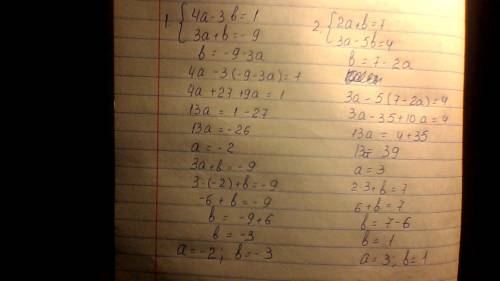 1. { 4a-3b=1
3a+b=-9
b=-9-3a
4a-3(-9-3a)=1
4a+27+9a=1
13a=1-27
13a=-26
a=-2
3a+b=-9
3·(-2)+b=-9
-6+b=-9
b=-9+6
b=-3
a=-2; b=-3
2. { 2a+b=7
3a-5b=4
b=7-2a
3a-5(7-2a)=4
3a-35+10a=4
13a=4+35
13a=39
a=3
2·3+b=7
6+b=7
b=7-6
b=1
a=3; b=1